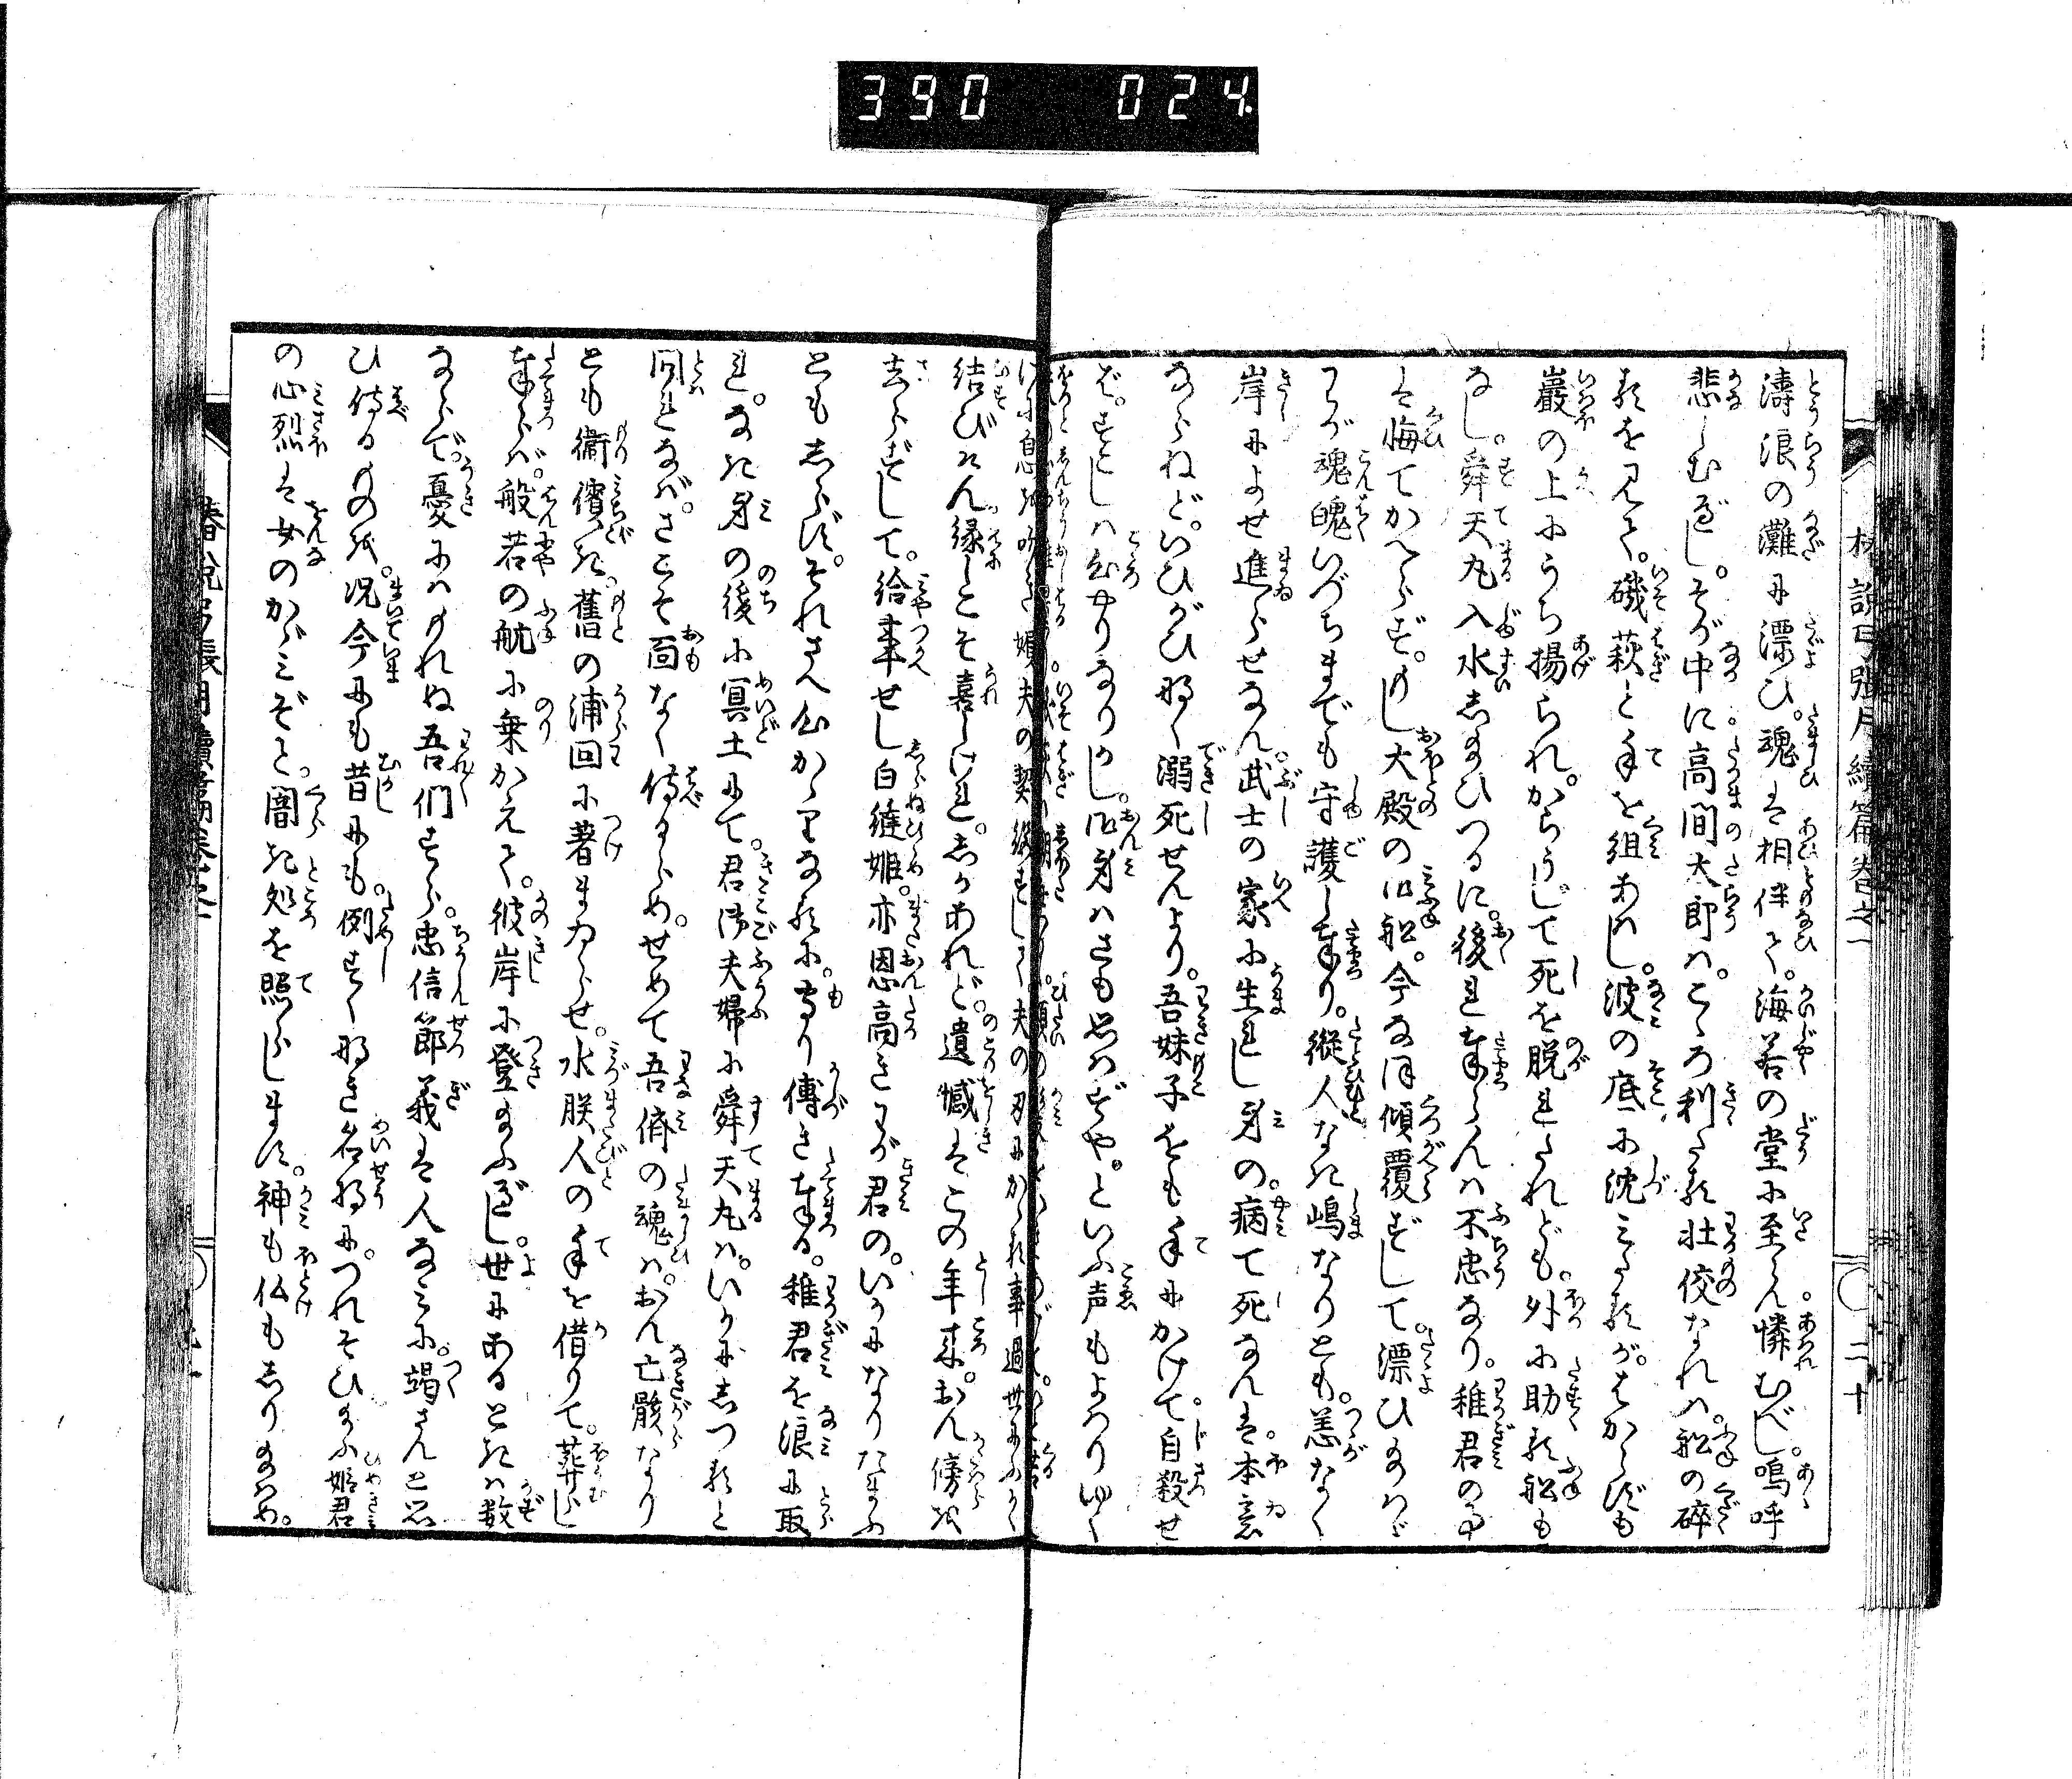 390 024
椿説弓張月續篇巻之一 ○二十
濤浪の灘に漂ひ。魂は相伴て。海若の堂に至らん。憐むべし。嗚呼
悲しむべし。そが中に高間太郎は。こゝろ利たる壮佼なれば。船の碎
るを見て。磯萩と手を組あはし。波の底に沈みたるが。はからずも
巖の上にうち揚られ。からうして死を脱れたれども。外に助る船も
なし。舜天丸入水し給ひつるに。後れ奉らんは不忠なり。稚君の
は悔てかへらず。もし大殿の御船。今なほ傾覆ずして。漂ひ給はゞ
わが魂魄いづちまでも守護し奉り。縦人なき嶋なりとも。恙なく
岸によせ進らせなん。武士の家に生れし身の。病て死なんは。本意
ならねど。いひがひなく溺死せんより。吾妹子をも手にかけて。自殺せ
ばや。とし は心やりなりかし。御身はさも思はずや。といふ声もよはりゆく
結びけん縁しとそ喜しけれ。しかあれど。遺憾はこの年来。おん傍を
去らずして。給事せし白縫姫。亦恩高きわが君の。いかになりたまふ
ともしらず。それさへ心かゝりなるに。守り傅き奉る。稚君を浪に取
れ。なき身の後に冥土にて。君御夫婦に舜天丸は。いかにしつると
問れなば。さこそ面なく侍るらめ。せめて吾儕の魂は。おん亡骸なり
とも衞儐て。舊の浦回に著まゐらせ。水朕人の手を借りて。葬し
奉らば。般若の航に乗かえて。彼岸に登給ふべし。世にあるときは数
ならで。憂にはもれぬ吾們すら。忠信節義は人なみに。竭さんと思
ひ侍るものを。况今にも昔にも。例すくなき名将に。つれそひ給ふ姫君
の心烈は女のかゞみぞと。闇き処を照らします。神も仏もしり給はめ。
椿説弓張月續篇巻之一